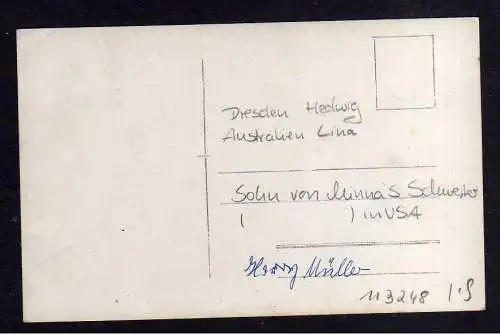 Dresden Hedwig
Australien Lina
Sohn von Minna's Schwester
( ) in USA
Harry Müller
113248 1.5